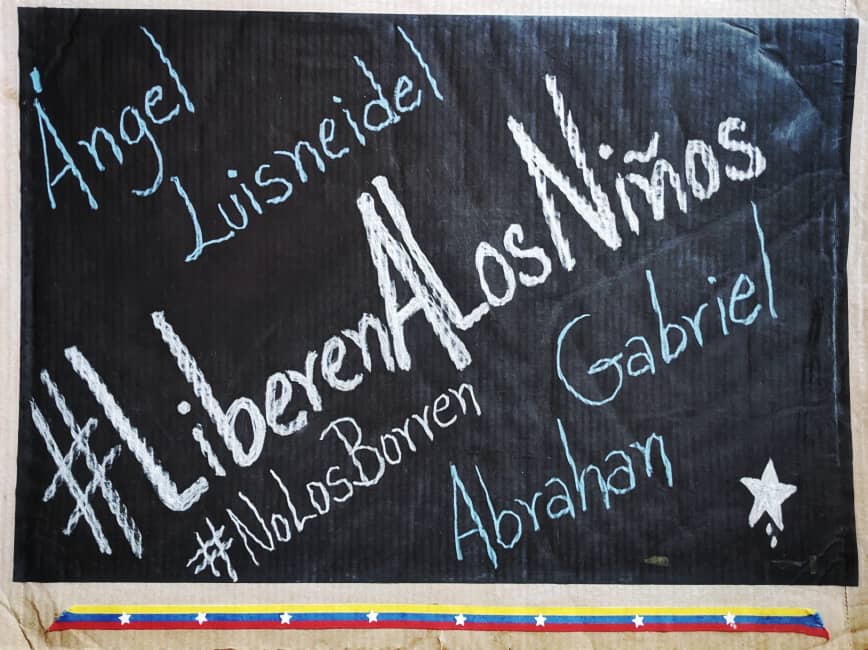 Ángel
Luisneidel
#LiberenALosNiños
#NoLosBorren
Gabriel
Abrahan